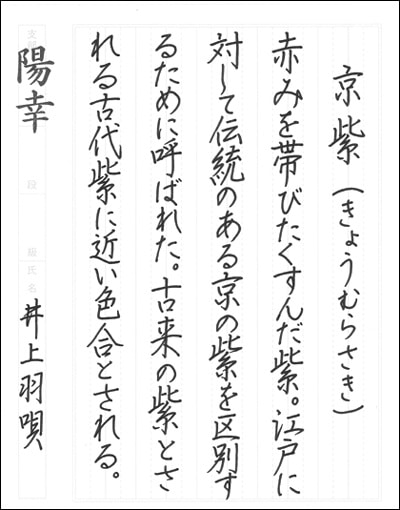 京紫(きょうむらさき)
赤みを帯びたくすんだ紫。江戸に
対して伝統のある京の紫を区別す
るために呼ばれた。古来の紫とさ
れる古代紫に近い色合とされる。
陽幸
段
級
氏名
井上羽唄